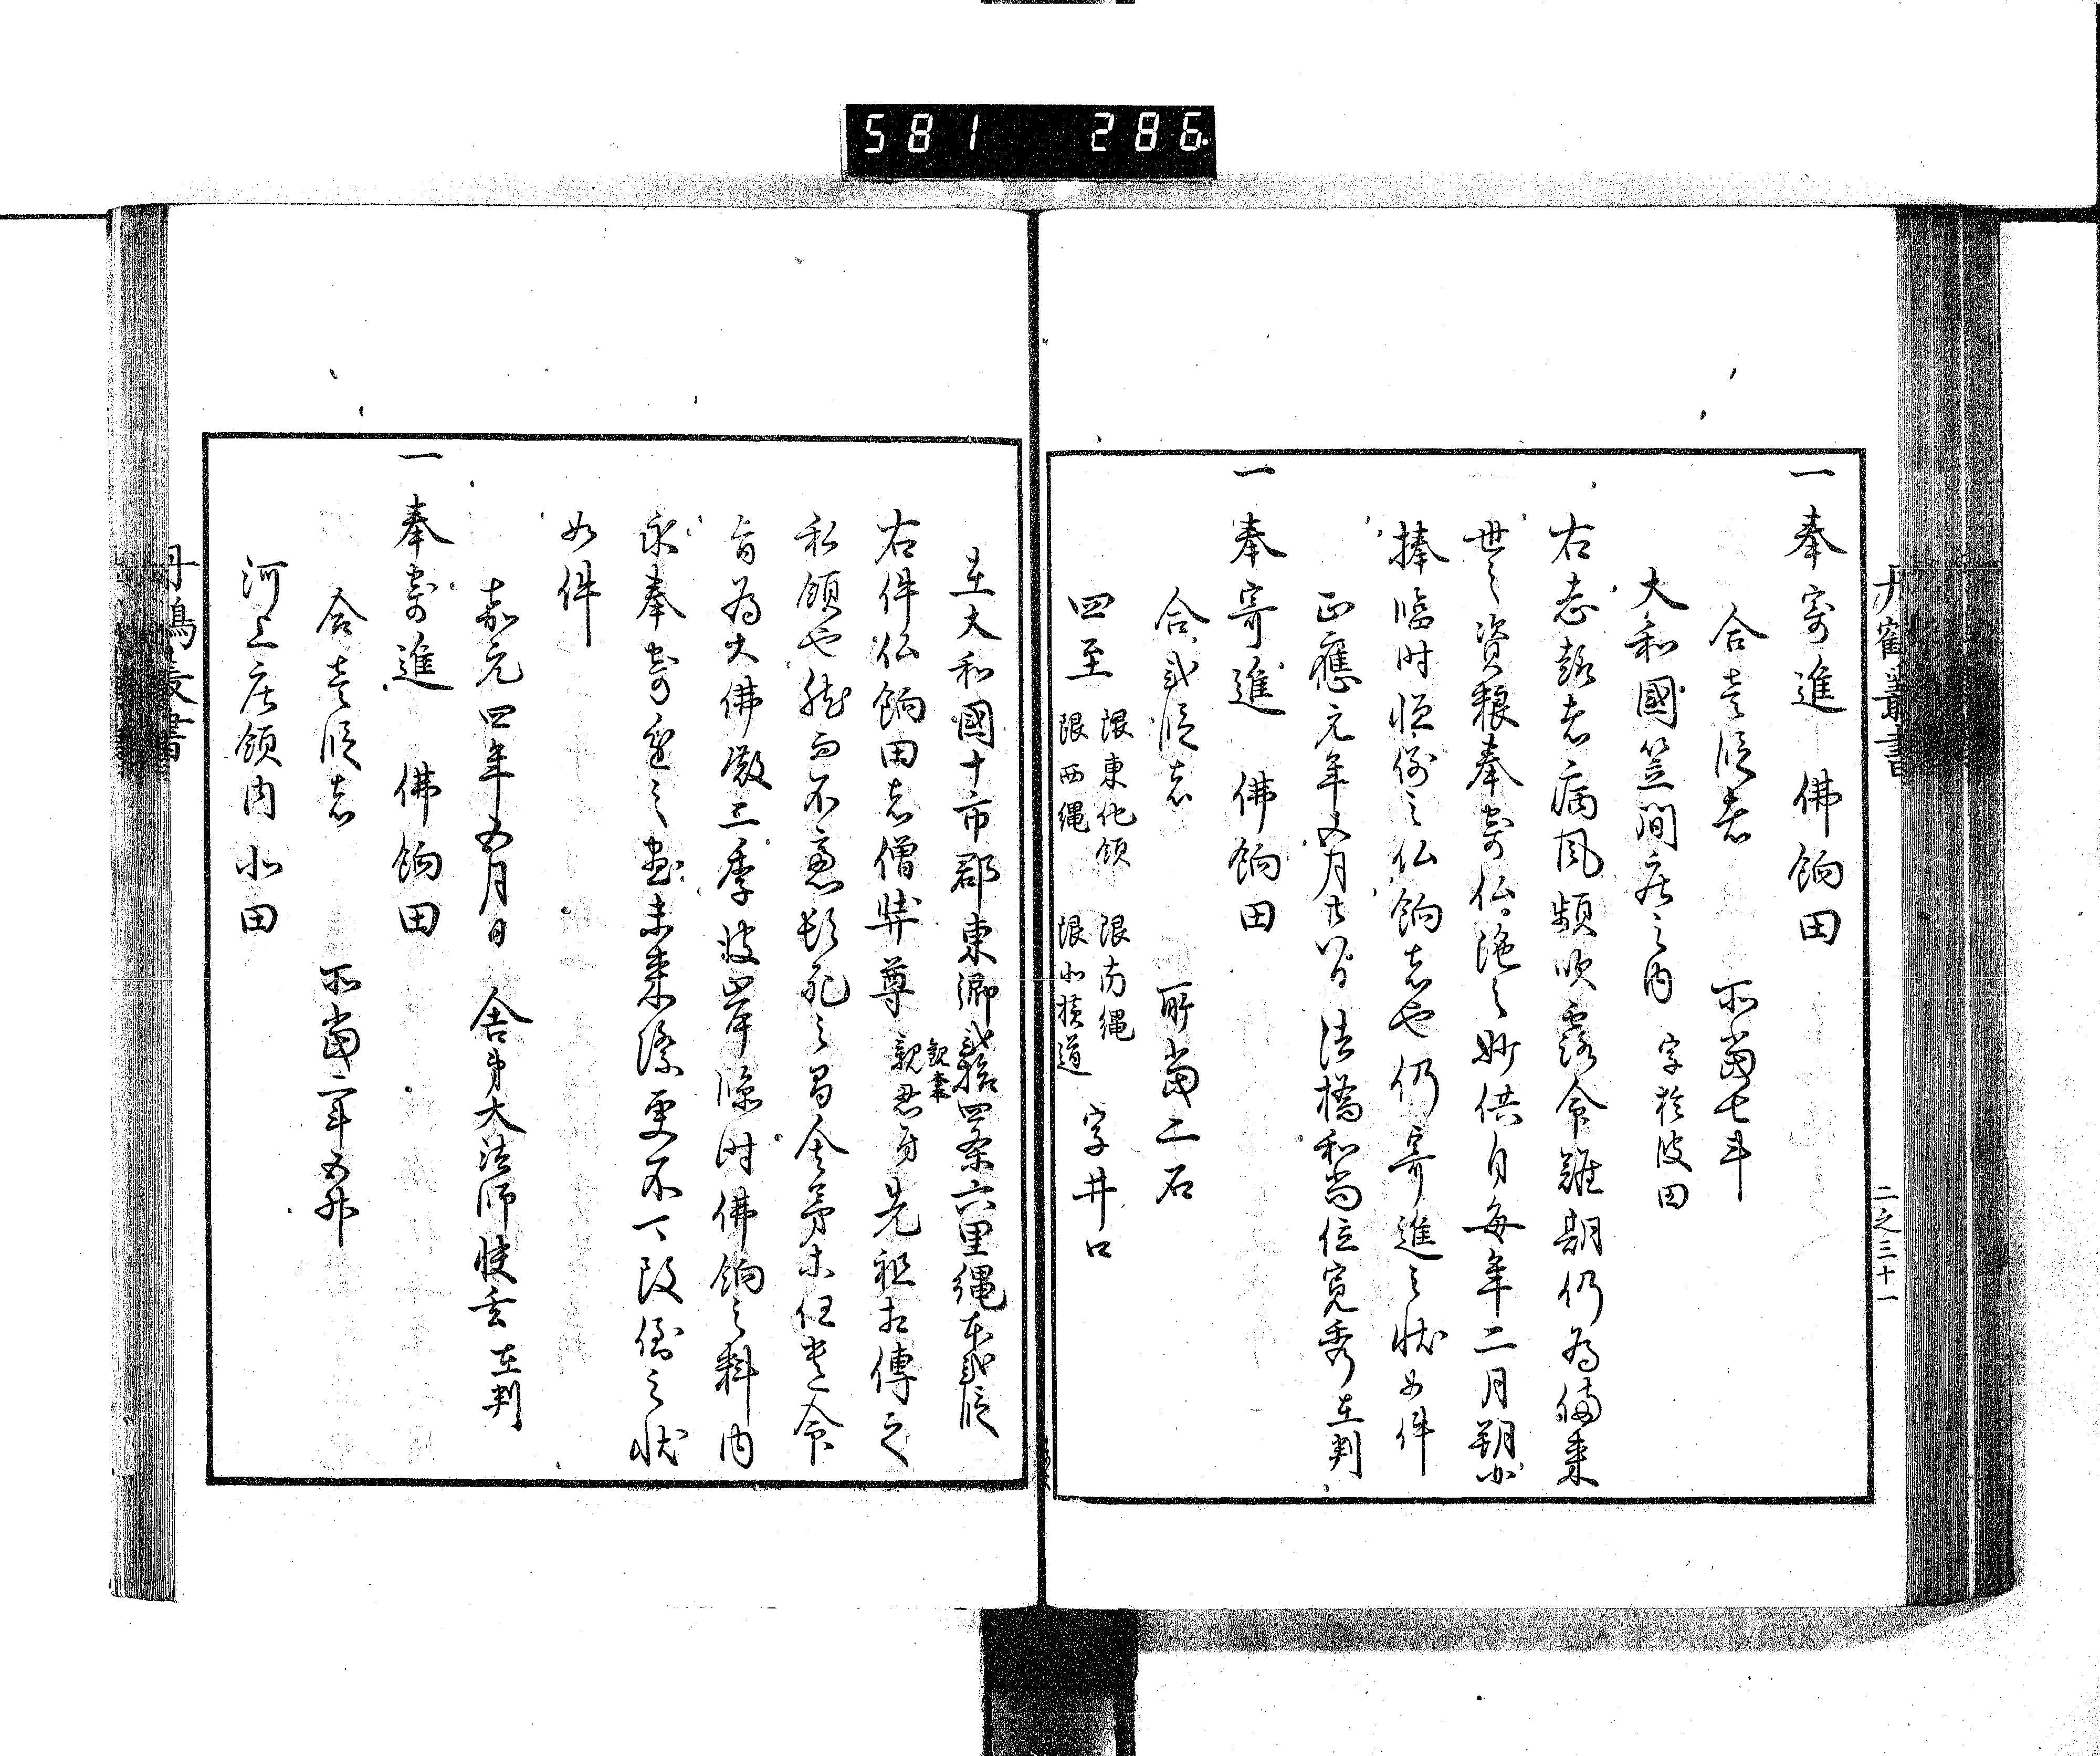 581 286
丹鶴叢書
二之三十一
一奉寄進 佛餉田
合壱段者 所當七斗
大和國笠間庄之内 字於波田
右志趣者病風頻吹露命難期仍為備来
世之資粮奉寄仏陀之妙供自毎年二月朔
捧臨時恒例之仏餉者也仍寄進之状如件
正應元年五月廿八日 法橋和尚位寛秀 在判
一奉寄進 佛餉田
合貳段者 所當二石
四至 限東他領 限南縄
限西縄 限北横道 字井口
在大和國十市郡東郷貳拾四条六里縄本貳段
右件仏餉田者僧 尊 先祖相傳之
私領也然而不慮頓死之間舎弟等任遺命
旨為大佛殿二季彼岸臨時佛餉之料内
永奉寄進之盡未来際更不可改倒之状
如件
嘉元四年五月日 舎弟大法師快玄 在判
一奉寄進 佛餉田
合壱段者 所當二斗五升
河上庄領内北田
丹鶴叢書